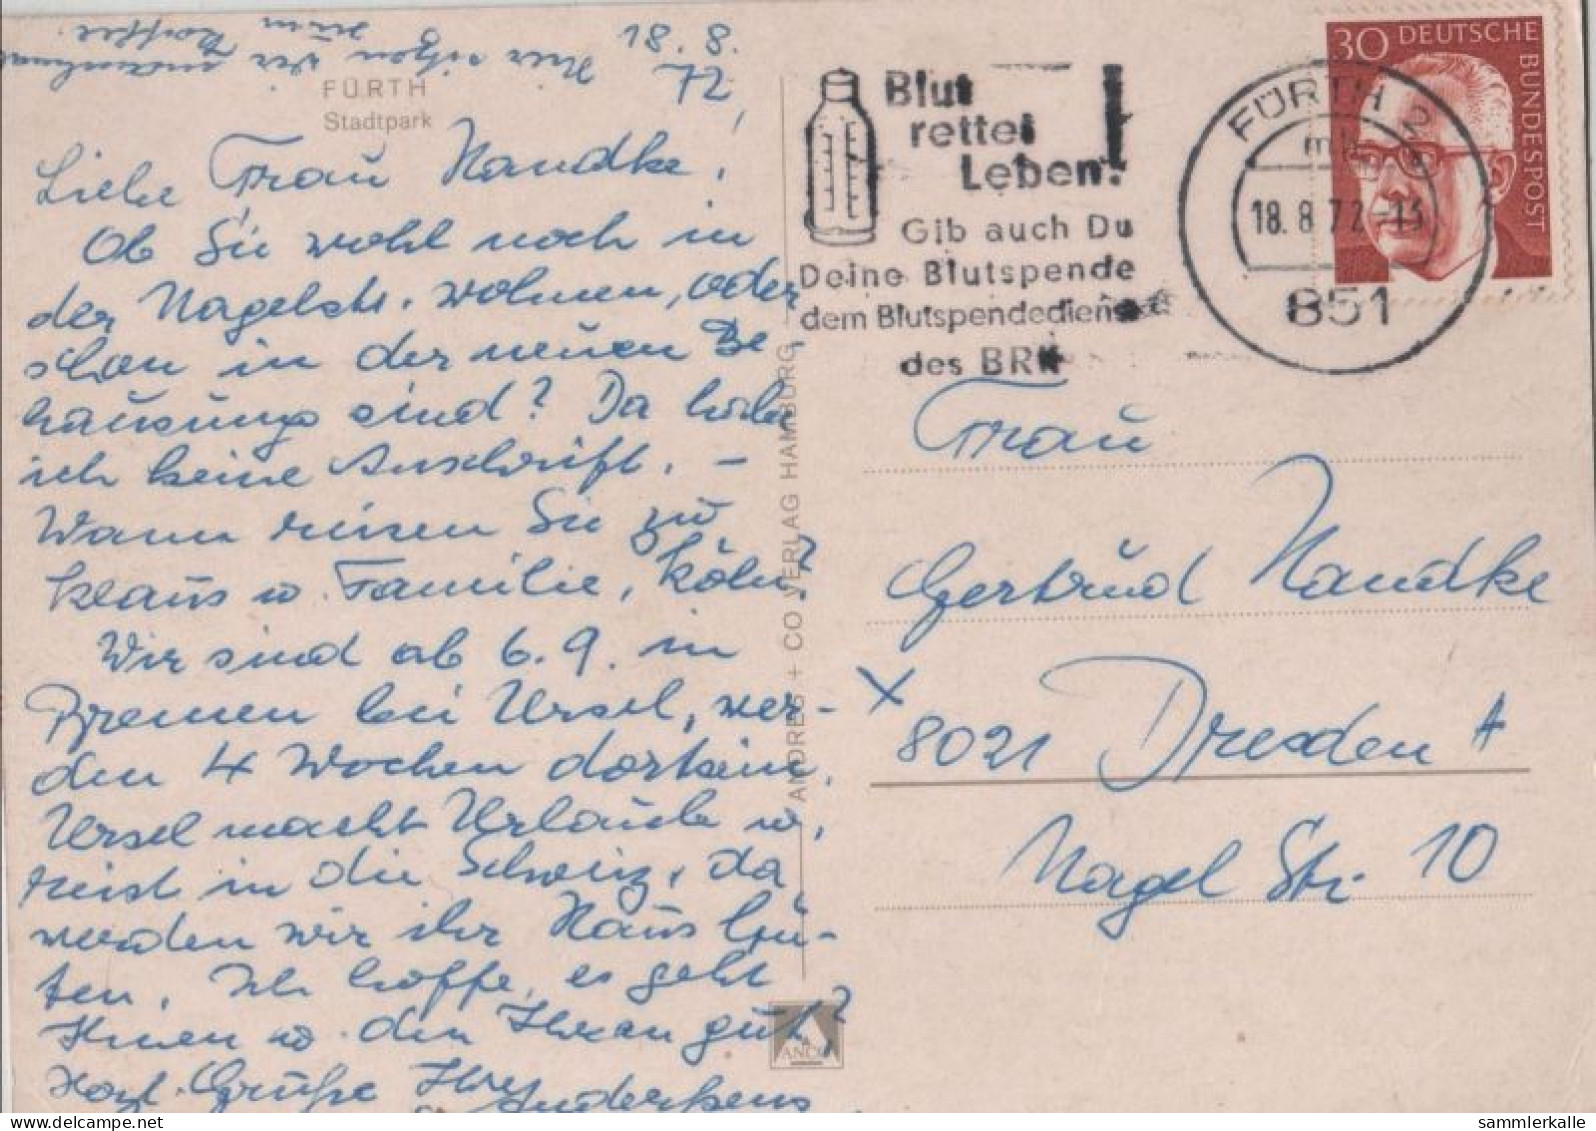 Hier sitzen wir manchmal
zum
Kaffee.
18.8.
72
FÜRTH
Stadtpark
Liebe Frau Handke!
Ob Sie wohl noch in
der Nagelstr. wohnen, oder
schon in der neuen Be-
hausung sind? Da habe
ich keine Anschrift. –
Wann reisen Sie zu
Klaus u. Familie, Köln?
Wir sind ab 6.9. in
Bremen bei Ursel, wer-
den 4 Wochen dort sein.
Ursel macht Urlaub u.
reist in die Schweiz, da
werden wir ihr Haus hü-
ten. Ich hoffe, es geht
Ihnen u. den Ihren gut?
Herzl. Grüße Ihre
ANDRES + CO VERLAG HAMBURG
ANCO
Blut
rettet
Leben!
Gib auch Du
Deine Blutspende
dem Blutspendedienst
des BRK
FÜRTH 2
18.8.72-13
851
30 DEUTSCHE
BUNDESPOST
Frau
Gertrud Handke
X 8021 Dresden A
Nagel Str. 10
delcampe.net
sammlerkalle